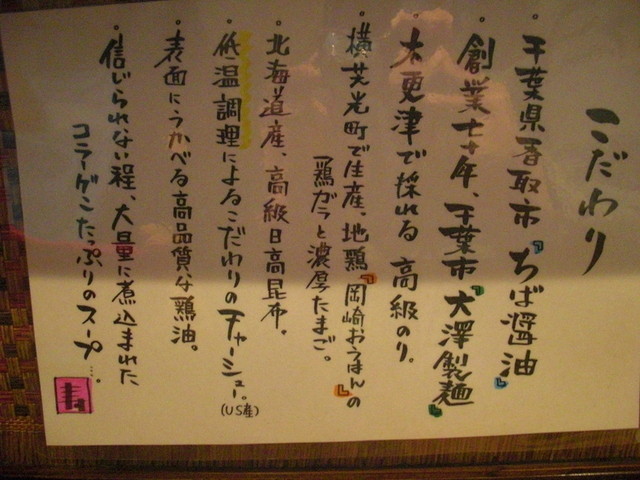 こだわり
・千葉県香取市『ちば醤油』
・創業七十年、千葉市『大澤製麺』
・木更津で採れる高級のり。
・横芝光町で生産、地鶏『岡崎おうはん』の
鶏ガラと濃厚たまご。
・北海道産、高級日高昆布。
・低温調理によるこだわりのチャーシュー。(US産)
・表面にうかべる高品質な鶏油。
・信じられない程、大量に煮込まれた
コラーゲンたっぷりのスープ…。